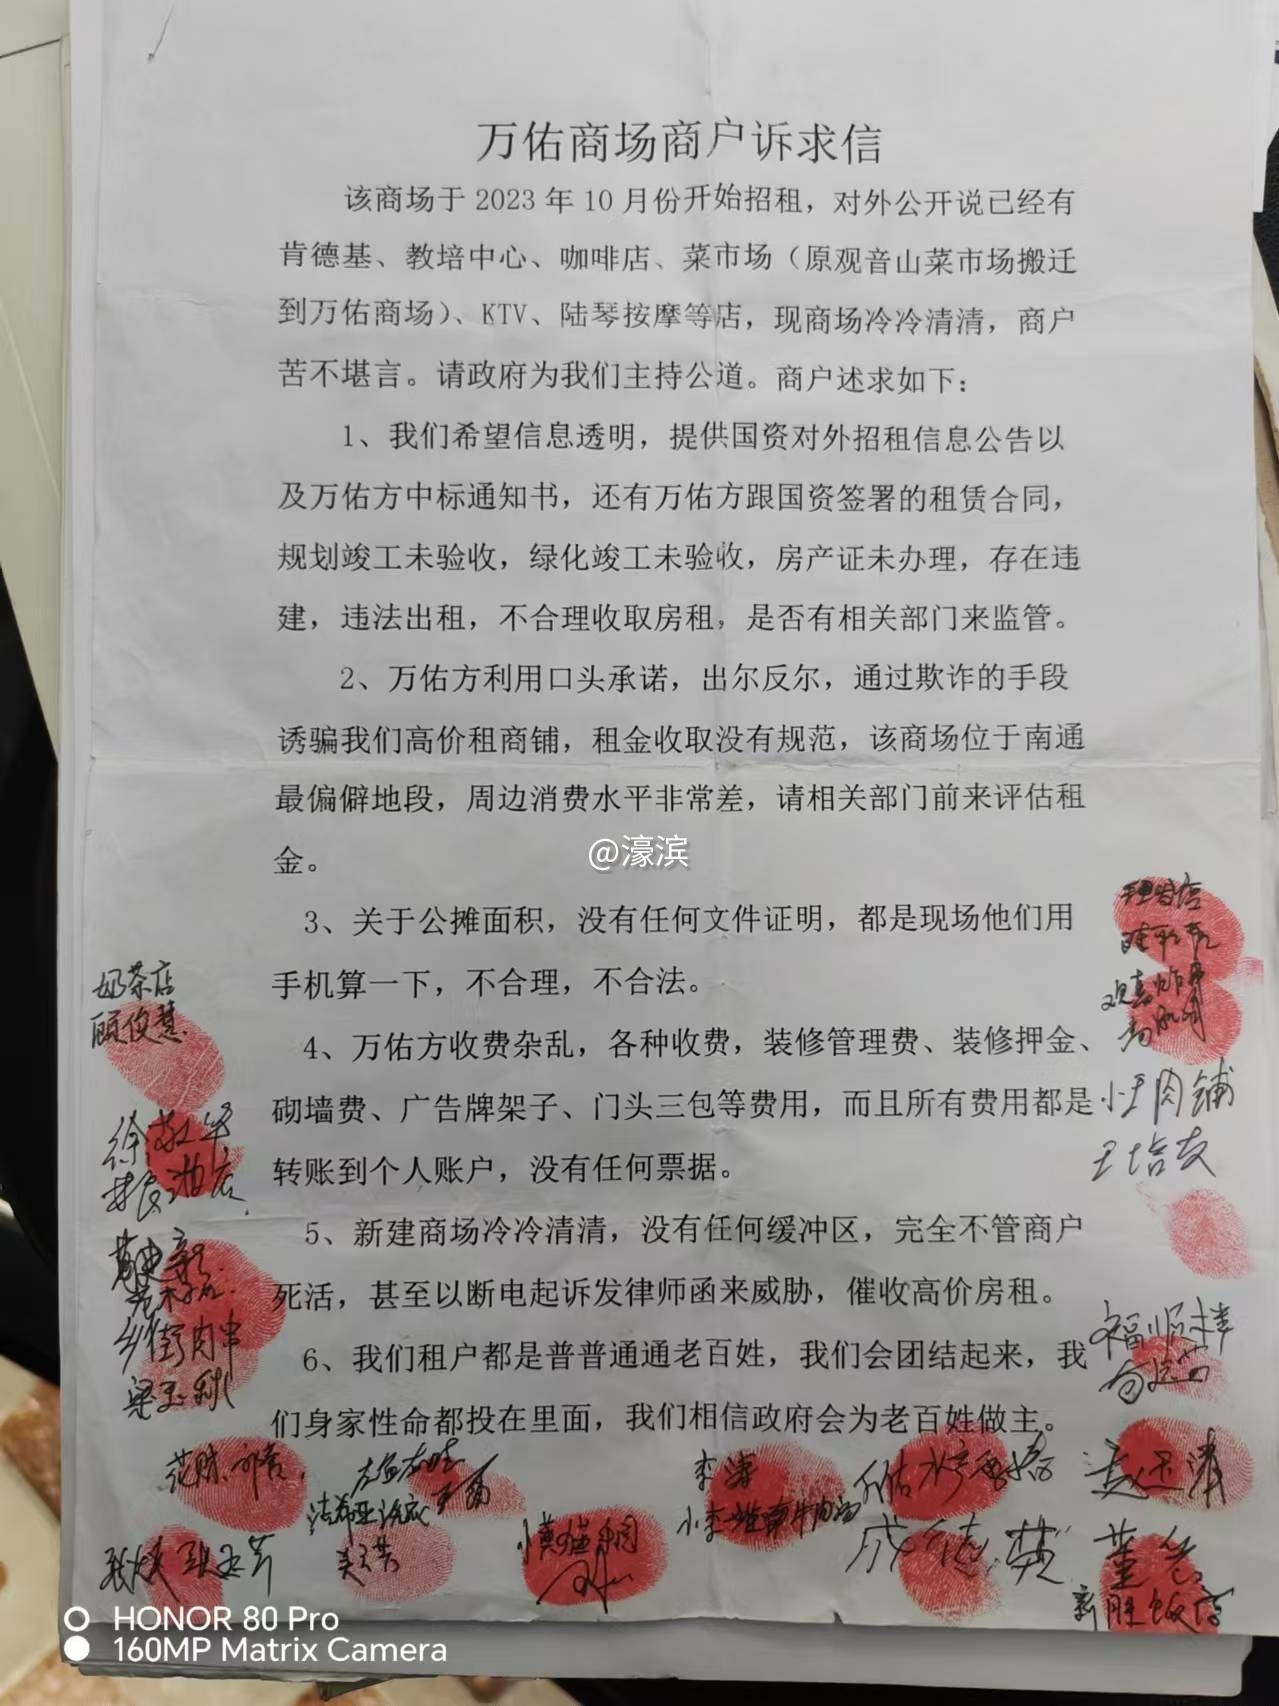 万佑商场商户诉求信
该商场于 2023 年 10 月份开始招租，对外公开说已经有
肯德基、教培中心、咖啡店、菜市场（原观音山菜市场搬迁
到万佑商场）、KTV、陆琴按摩等店，现商场冷冷清清，商户
苦不堪言。请政府为我们主持公道。商户述求如下：
1、我们希望信息透明，提供国资对外招租信息公告以
及万佑方中标通知书，还有万佑方跟国资签署的租赁合同，
规划竣工未验收，绿化竣工未验收，房产证未办理，存在违
建，违法出租，不合理收取房租，是否有相关部门来监管。
2、万佑方利用口头承诺，出尔反尔，通过欺诈的手段
诱骗我们高价租商铺，租金收取没有规范，该商场位于南通
最偏僻地段，周边消费水平非常差，请相关部门前来评估租
金。
@濠滨
3、关于公摊面积，没有任何文件证明，都是现场他们用
手机算一下，不合理，不合法。
4、万佑方收费杂乱，各种收费，装修管理费、装修押金、
砌墙费、广告牌架子、门头三包等费用，而且所有费用都是
转账到个人账户，没有任何票据。
5、新建商场冷冷清清，没有任何缓冲区，完全不管商户
死活，甚至以断电起诉发律师函来威胁，催收高价房租。
6、我们租户都是普普通通老百姓，我们会团结起来，我
们身家性命都投在里面，我们相信政府会为老百姓做主。
奶茶店
顾俊慧
理发店
小王肉铺
王培友
福顺楼
乡街肉串
梁玉秋
李涛
成德赞
董云
新胜饭店
HONOR 80 Pro
160MP Matrix Camera